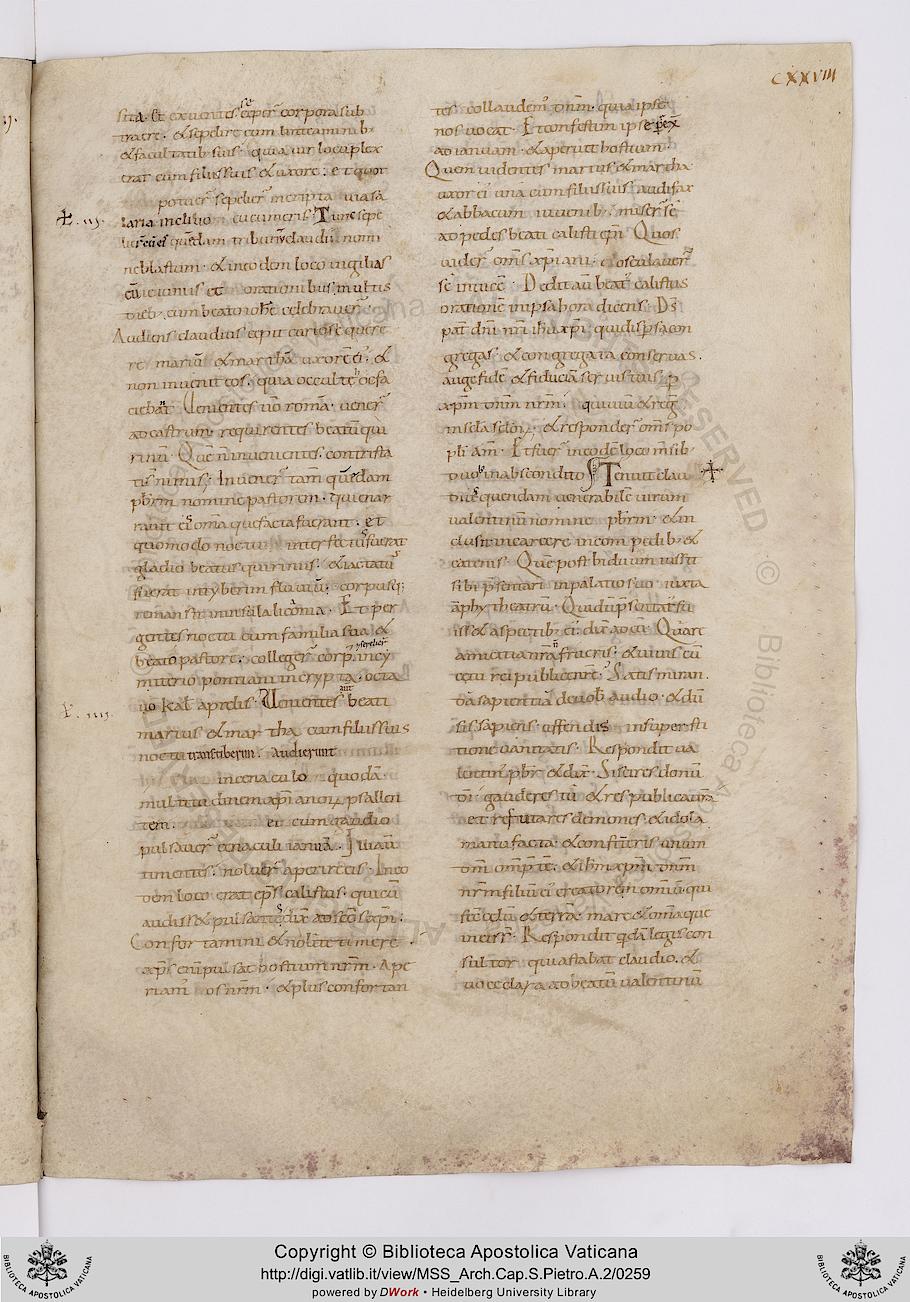 CXXVIII
sita. Et exeuntes ceper corpora sub
trare. & sepelire cum linteaminib
& facultatib suis. quia uir locuplex
erat cum filiis suis & uxore. et quot
potuer sepelier in cripta uia sa
laria in cliuo cucumeris. Tunc sepe
quēdam tribunū claudii nomi
ne blastum. & in eodem loco uigilias
orationibus multis
dieb. cum beato iohe celebrauer
Audiens claudius cepit curiose quere
re mariū & marthā uxorē ei. &
non inuenit eos. quia occulte ,, &
ciebat. Uenientes uō romā. uener
ad castrum. requirentes beatum qui
rinū. Quē n inuenientes. contrista
ti s nimis. Inuener tam quēdam
pbrm nomine pastorem. qui enar
rauit eis oma que facta fuerant. et
quomodo noctu interfectus fuerat
gladio beatus quirinus. & iactatus
fuerat in tyberim fluuiū. corpus ej;
remansit in insula licaonia. Et per
gentes noctu cum familia sua &
beato pastore. colleger corp. in cy
miterio pontiani in crypta. octa
uo kal aprelis. Uenientes aut beati
marius & martha cum filiis suis
noctu transtiberim. audierunt
in cenaculo quodā.
multitudinem xpianor psallen
tem. et cum gaudio
pulsauer cenaculi ianuā. Illi aū
timentes. noluer aperire eis. In eo
dem loco erat eps calistus. qui cū
audiss& pulsantes dix ad scos xpi.
Confortamini & nolite timere.
xps enī pulsat hostium nrm. Ape
riam os nrm. & plus confortan
tes collaudem dnm. quia ipse
nos uocat. Et confestim ipse
ad ianuam. & aperuit hostium.
Quem uidentes martus & martha
uxor ei una cum filiis suis audifax
& abbacum iuuenib. miser se
ad pedes beati calisti epi. Quos
uider oms xpiani. & osculauer
se inuicē. Dedit aū beat calistus
orationē in ipsa hora dicens. Ds
pat dni nri ihu xpi. qui dispsa con
gregas. & congregata conseruas.
auge fidē & fiduciā seruis tuis. p
xpm dnm nrm. qui uiuit & reg
in scla sclor. & responder oms po
pli am. Et fuer in eodē loco mensib
duob in abscondito. Tenuit clau
dius quendam uenerabilē uirum
ualentinū nomine pbrm. & in
clusit in carcere in compedib. &
catenis. Quē post biduum iussit
sibi psentari in palatio suo iuxta
amphytheatrū. Qui dū psentatus fu
iss& aspectib ei. dix ad eū. Quare
amicitia nra n frueris. & uiuis cū
coetu rei publice nre. Satis miran
dā sapientiā de uob audio. & dū
sis sapiens. offendis in supersti
tione uanitatis. Respondit ua
lentin pbr & dix. Si scires donū
di gauderes tu & res publica tua
et refutares demones & idola
manu facta. & confiteris unum
dm omptē. & ihm xpm dnm
nrm filiū ei creatorem omiū qui
fecit celū & terrā. mare & omia que
in eis s. Respondit qdā legis con
sultor qui astabat claudio. &
uoce clara ad beatū ualentinū
Copyright © Biblioteca Apostolica Vaticana
http://digi.vatlib.it/view/MSS_Arch.Cap.S.Pietro.A.2/0259
powered by DWork • Heidelberg University Library
BIBLIOTECA APOSTOLICA VATICANA
BIBLIOTECA APOSTOLICA VATICANA